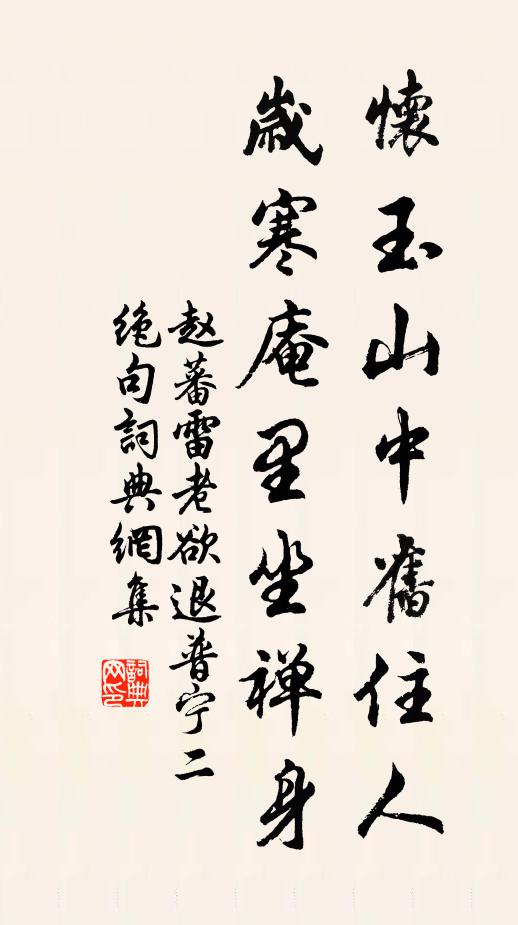 懷玉山中舊住人
歲寒庵里坐禅身
赵蕃雷老欲退普宁二
絕句詞典網集
詞典网印